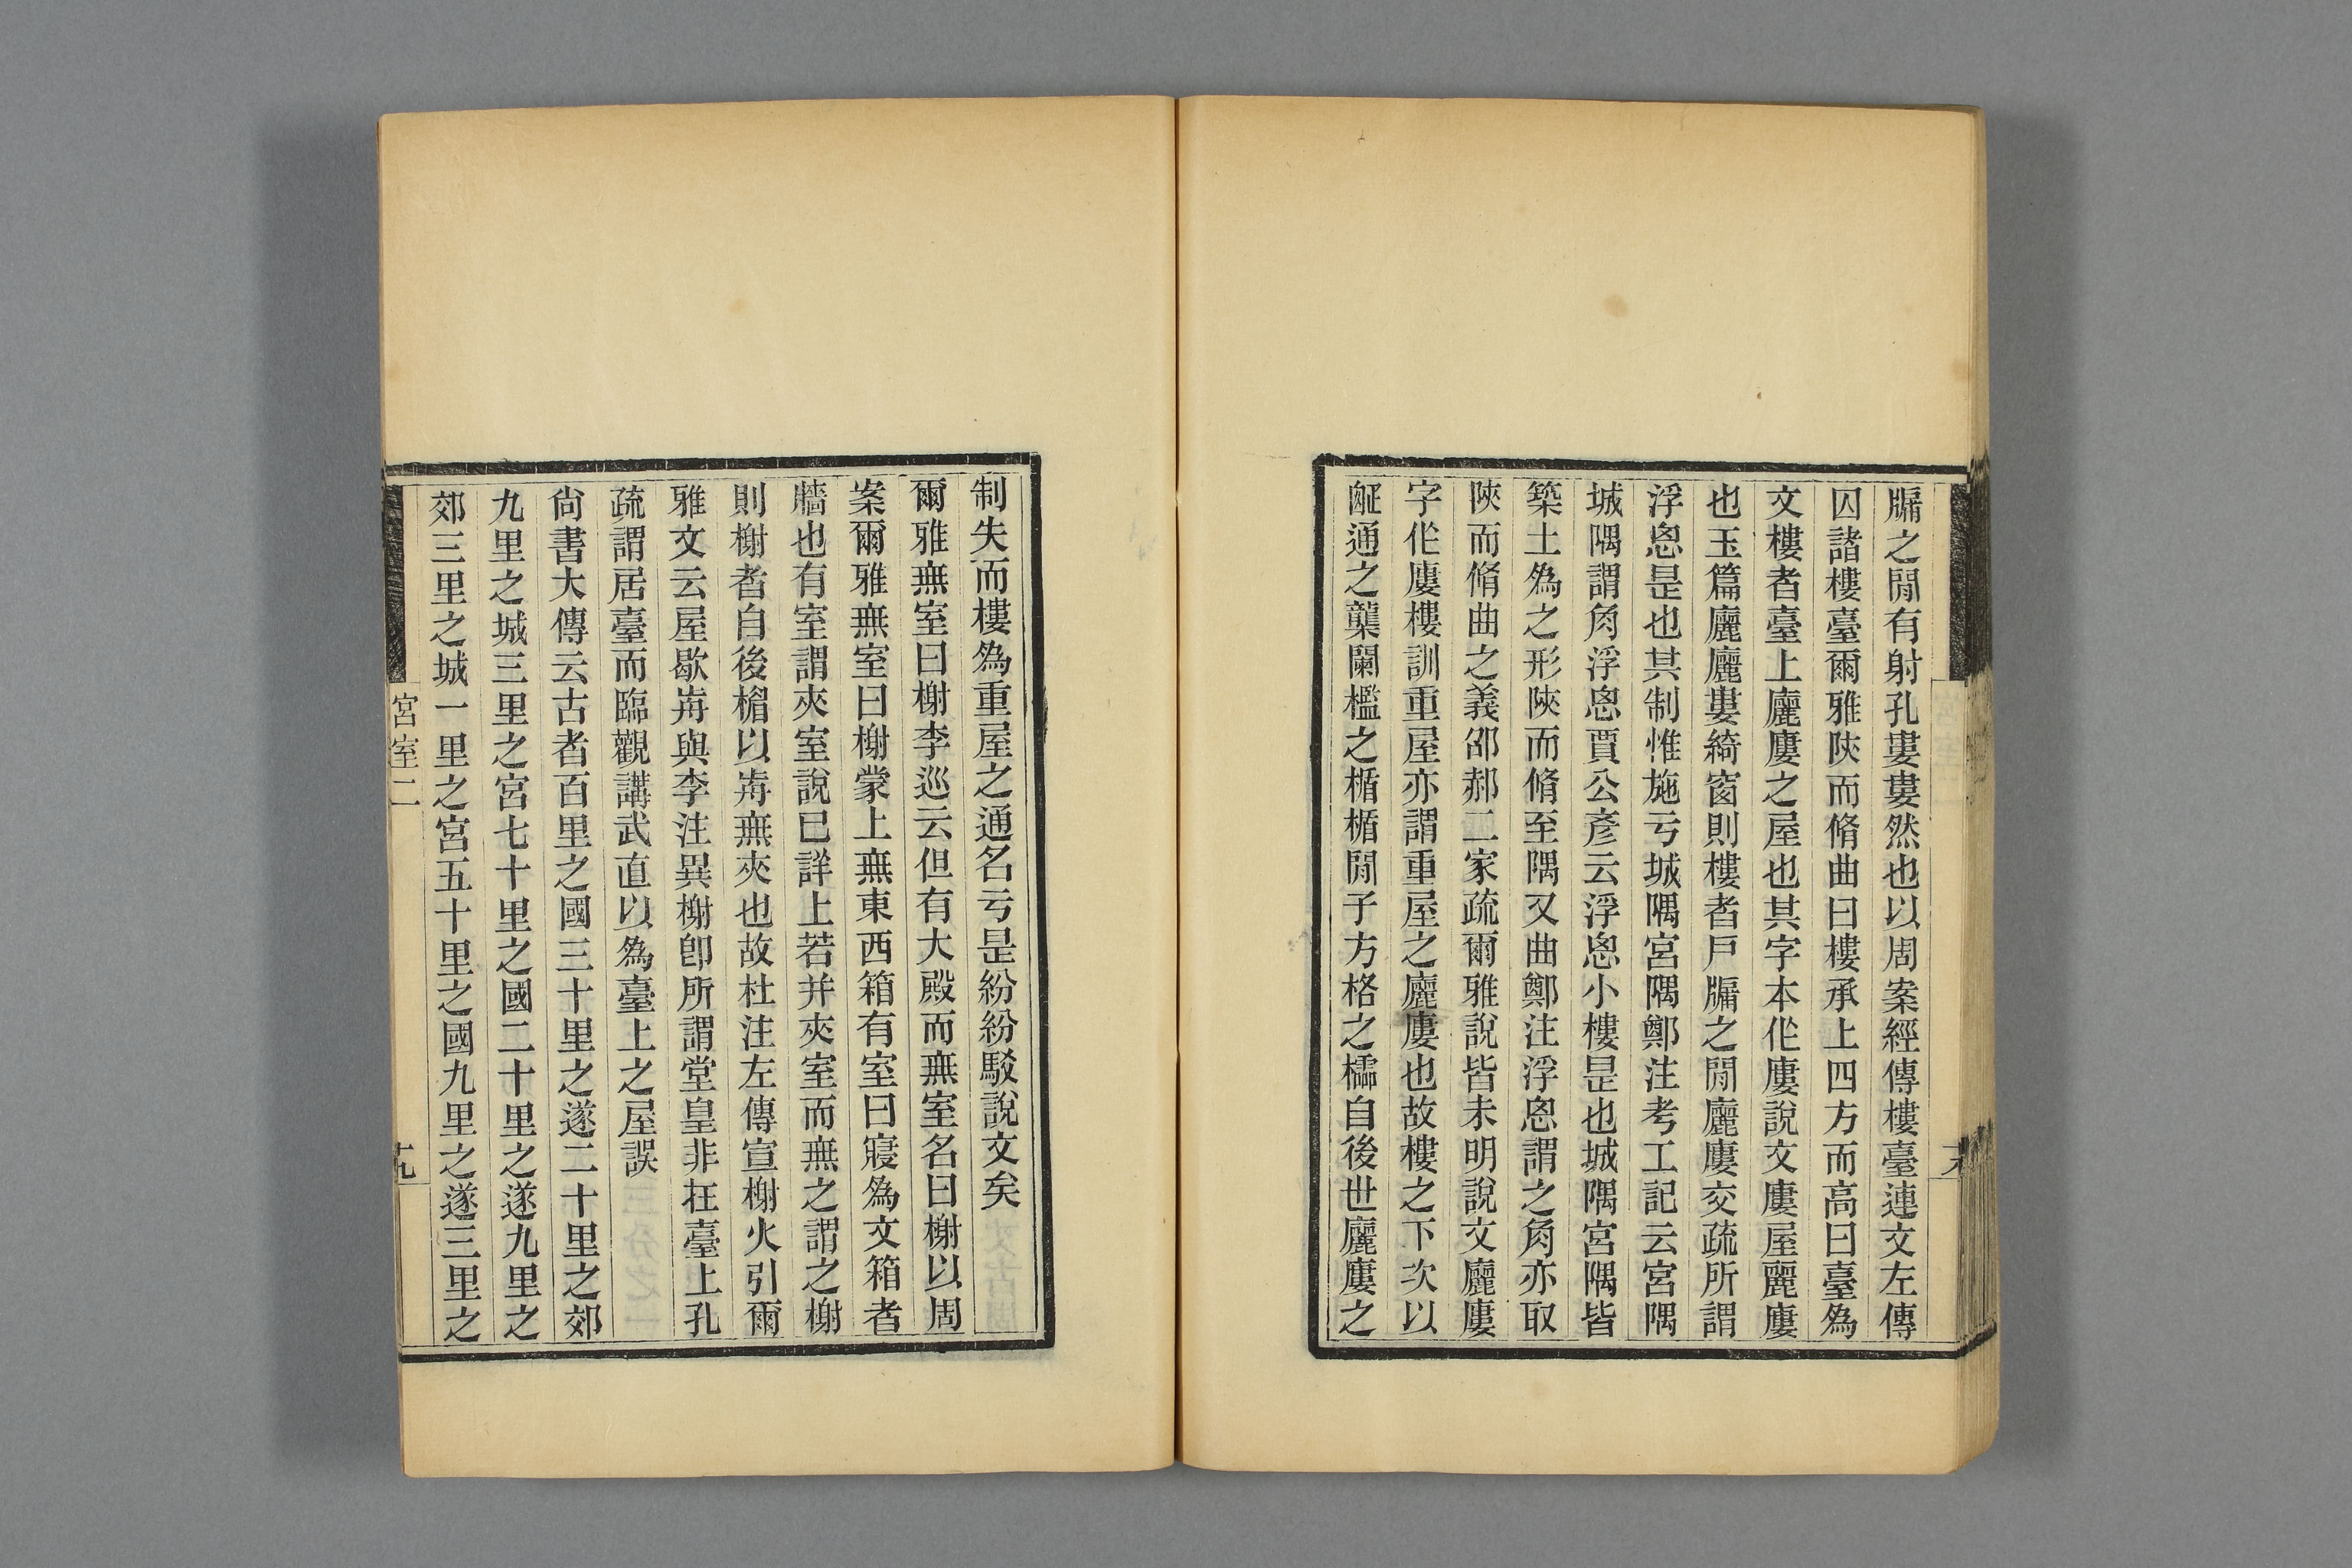 牖之閒有射孔婁婁然也以周案經傳樓臺連文左傳
囚諸樓臺爾雅陜而脩曲曰樓承上四方而高曰臺為
文樓者臺上廲廔之屋也其字本作廔說文廔屋麗廔
也玉篇廲廲婁綺窗則樓者戶牖之閒廲廔交疏所謂
浮思是也其制惟施亏城隅宮隅鄭注考工記云宮隅
城隅謂角浮思賈公彥云浮思小樓是也城隅宮隅皆
築土為之形陜而脩至隅又曲鄭注浮思謂之角亦取
陜而脩曲之義邵郝二家疏爾雅說皆未明說文廲廔
字作廔樓訓重屋亦謂重屋之廲廔也故樓之下次以
通之龒闌檻之楯楯閒子方格之櫺自後世廲廔之
制失而樓為重屋之通名亏是紛紛駁說文矣
爾雅無室曰榭李巡云但有大殿而無室名曰榭以周
案爾雅無室曰榭蒙上無東西箱有室曰寢為文箱者
牆也有室謂夾室說已詳上若并夾室而無之謂之榭
則榭者自後楣以歬無夾也故杜注左傳宣榭火引爾
雅文云屋歇歬與李注異榭卽所謂堂皇非在臺上孔
疏謂居臺而臨觀講武直以為臺上之屋誤
尙書大傳云古者百里之國三十里之遂二十里之郊
九里之城三里之宮七十里之國二十里之遂九里之
郊三里之城一里之宮五十里之國九里之遂三里之
宮室二
十九